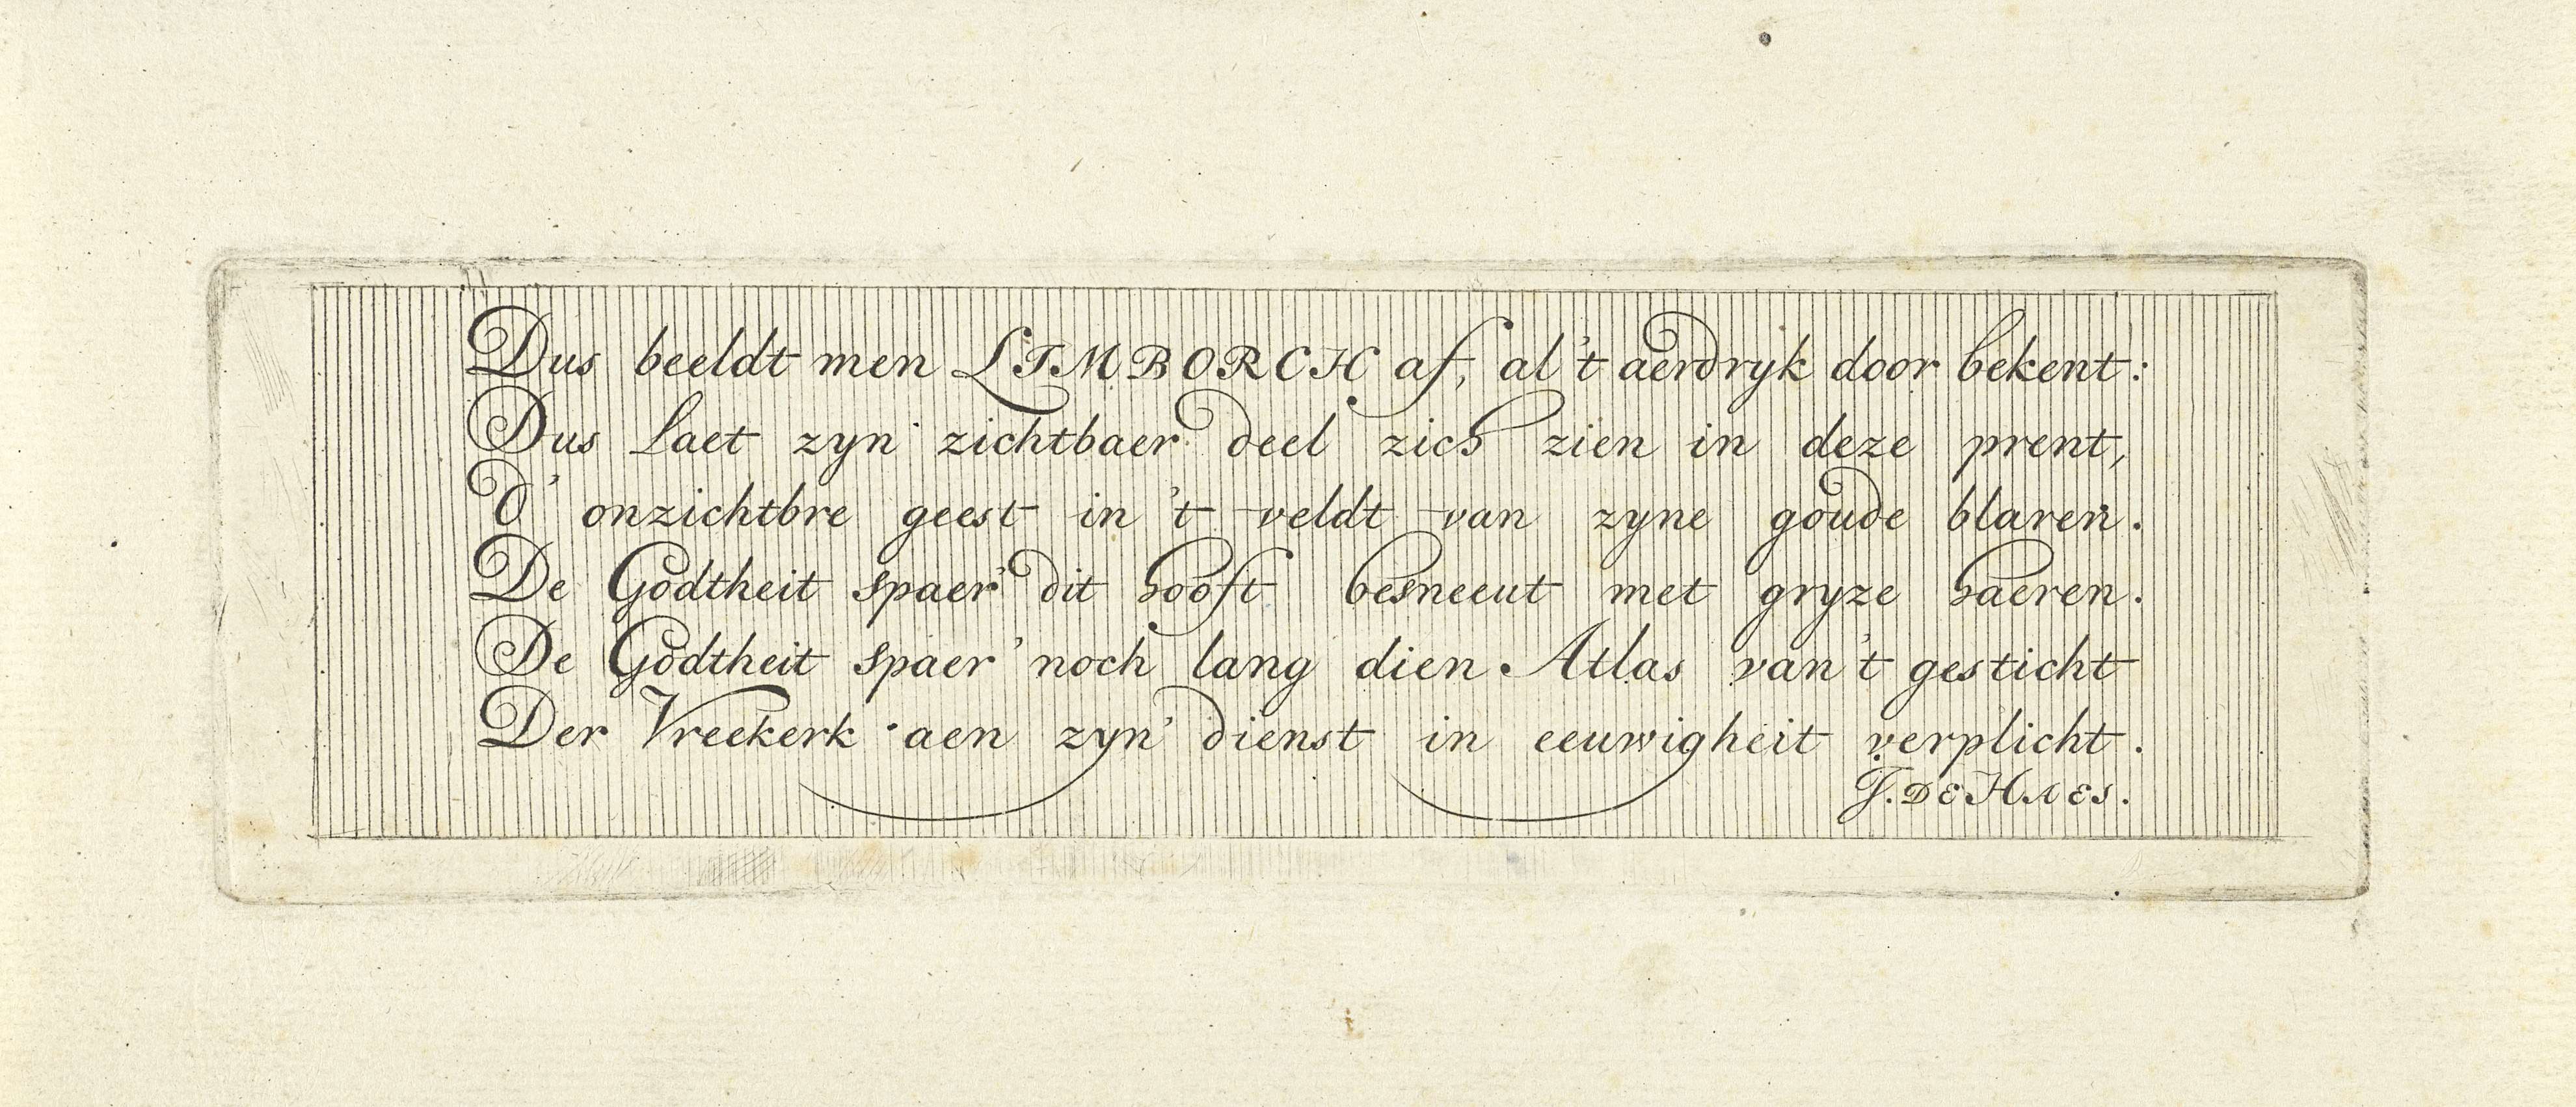 Dus beeldt men LIMBORCH af, al 't aerdryk door bekent:
Dus laet zyn zichtbaer deel zich zien in deze prent,
D' onzichtbre geest in 't veldt van zyne goude blaren.
De Godtheit spaer' dit hooft besneeut met gryze haeren.
De Godtheit spaer' noch lang dien Atlas van 't gesticht
Der Vreekerk aen zyn' dienst in eeuwigheit verplicht.
J. DE HAES.